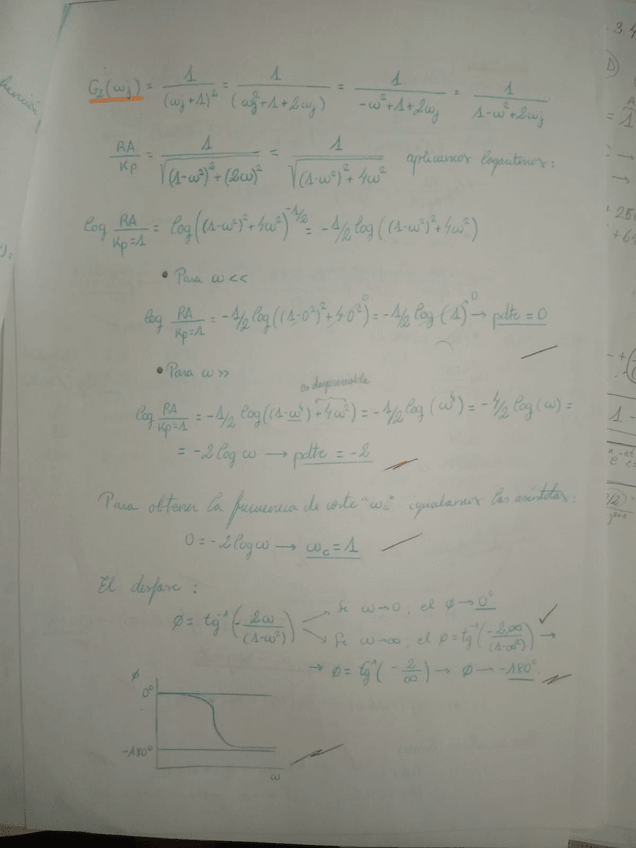 G₂(ωj) = 1/(ωj+1)² = 1/(ωj²+1+2ωj) = 1/(-ω²+1+2ωj) = 1/(1-ω²+2ωj)
RA/Kp = 1/√((1-ω²)²+(2ω)²) = 1/√((1-ω²)²+4ω²) aplicamos logaritmos:
log RA/Kp=1 = log((1-ω²)²+4ω²)^-1/2 = -1/2 log((1-ω²)²+4ω²)
• Para ω<<
log RA/Kp=1 = -1/2 log((1-0²)²+4·0²)⁰ = -1/2 log(1)⁰ → pdte = 0
• Para ω>>
es despreciable
log RA/Kp=1 = -1/2 log((1-ω⁴)+4ω²) = -1/2 log(ω⁴) = -4/2 log(ω) =
= -2 log ω → pdte = -2
Para obtener la frecuencia de corte "ωc" igualamos las asíntotas:
0 = -2 log ω → ωc = 1
El desfase:
Si ω→0, el φ→0°
φ = tg⁻¹(-2ω/(1-ω²))
Si ω→∞, el φ = tg⁻¹(-2∞/(1-∞²)) →
→ φ = tg⁻¹(-2/∞) → φ → -180°
φ
0°
-180°
ω